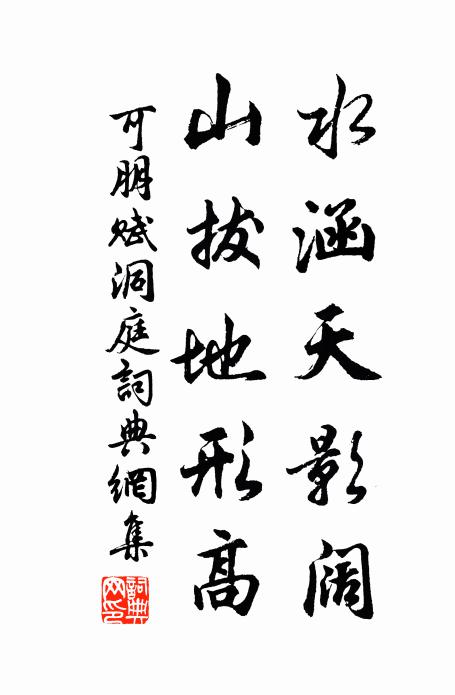 水涵天影阔
山拔地形高
可朋赋洞庭詞典網集
詞典网印